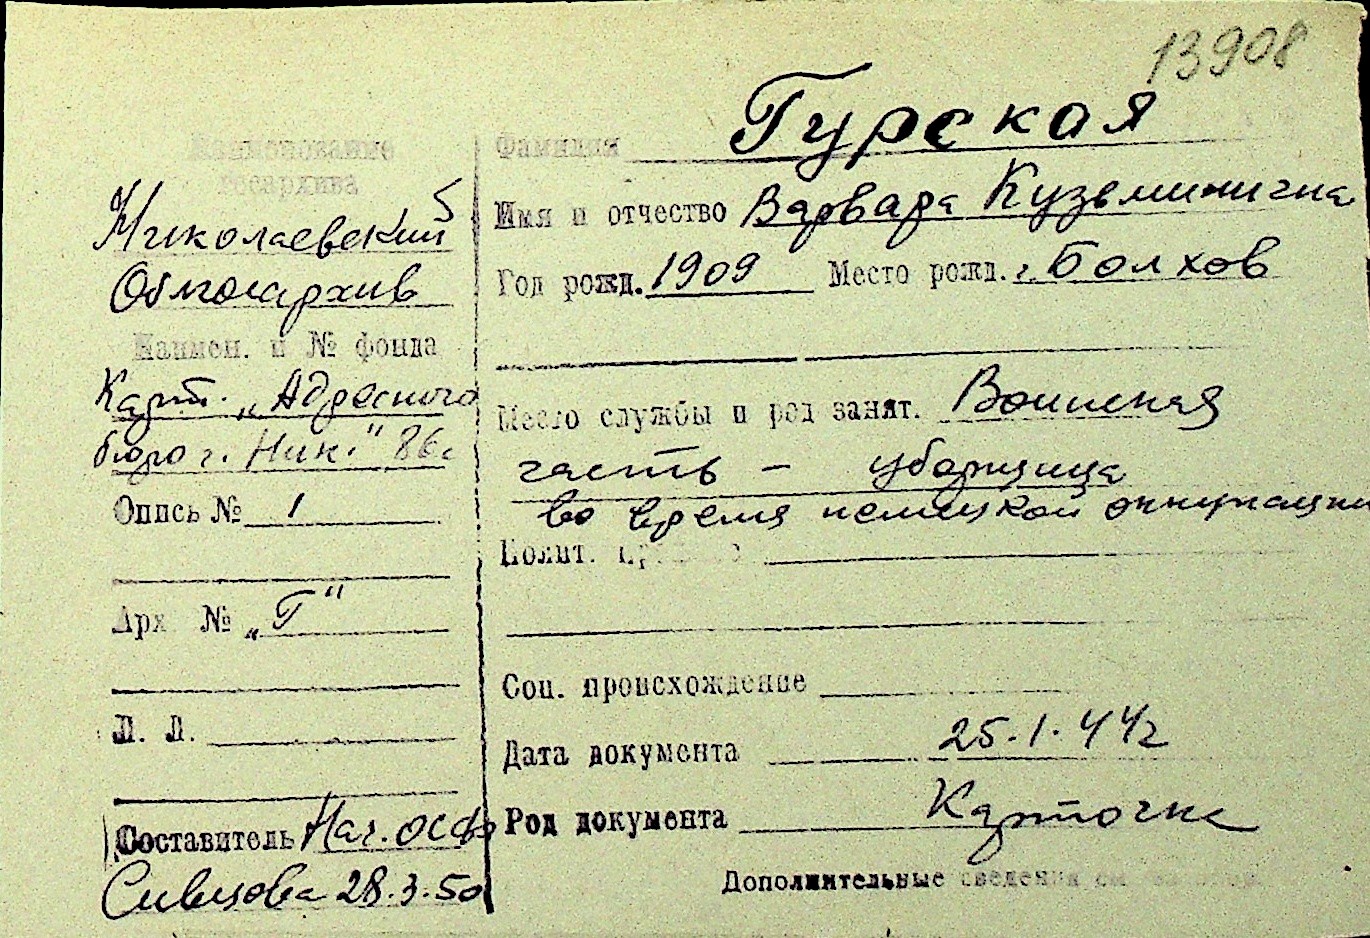 13908
Наименование
госархива
Николаевский
Облгосархив
Наимен. и № фонда
Карт. „Адресного
бюро г. Ник." 86с
Опись № 1
Арх № „Г"
Л. Л.
Составитель Нач. ОСФ
Сивцова 28.3.50
Фамилия Гурская
Имя и отчество Варвара Кузьминична
Год рожд. 1909 Место рожд. г. Болхов
Место службы и род занят. Воинская
часть - уборщица
во время немецкой оккупации
Полит.
Соц. происхождение
Дата документа 25.1.44г
Род документа Карточка
Дополнительные сведения см на